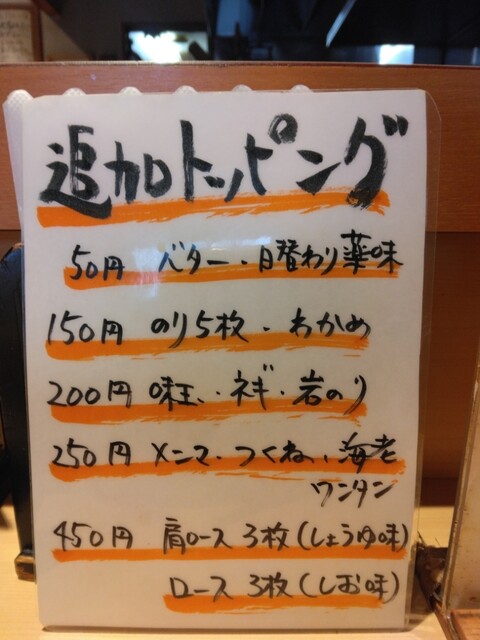 追加トッピング
50円 バター・日替わり薬味
150円 のり5枚・わかめ
200円 味玉・ネギ・岩のり
250円 メンマ・つくね、海老
ワンタン
450円 肩ロース3枚(しょうゆ味)
ロース3枚(しお味)